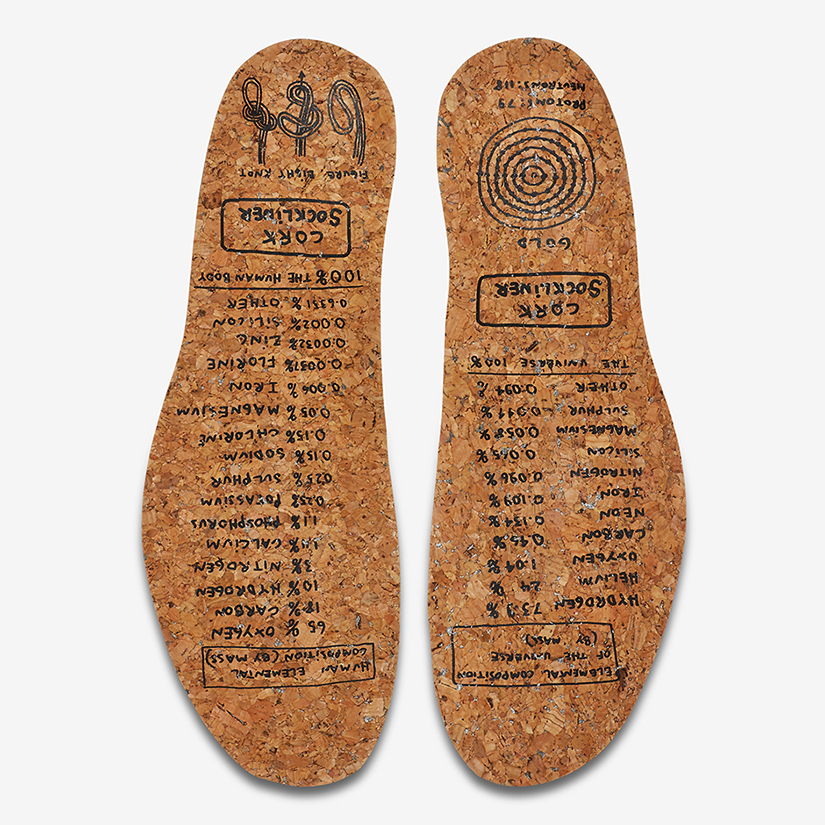 ELEMENTAL COMPOSITION
OF THE UNIVERSE
(BY MASS)
HYDROGEN 73.9 %
HELIUM 24 %
OXYGEN 1.04 %
CARBON 0.45 %
NEON 0.134 %
IRON 0.109 %
NITROGEN 0.096 %
SILICON 0.065 %
MAGNESIUM 0.058 %
SULPHUR 0.044 %
OTHER 0.094 %
THE UNIVERSE 100%
CORK
SOCKLINER
GOLD
PROTONS:79
NEUTRONS:118
HUMAN ELEMENTAL
COMPOSITION (BY MASS)
65 % OXYGEN
18% CARBON
10% HYDROGEN
3% NITROGEN
1.4% CALCIUM
1.1% PHOSPHORUS
0.25% POTASSIUM
0.25% SULPHUR
0.15% SODIUM
0.15% CHLORINE
0.05% MAGNESIUM
0.006% IRON
0.0037% FLORINE
0.0032% ZINC
0.002% SILICON
0.6351% OTHER
100% THE HUMAN BODY
CORK
SOCKLINER
FIGURE EIGHT KNOT